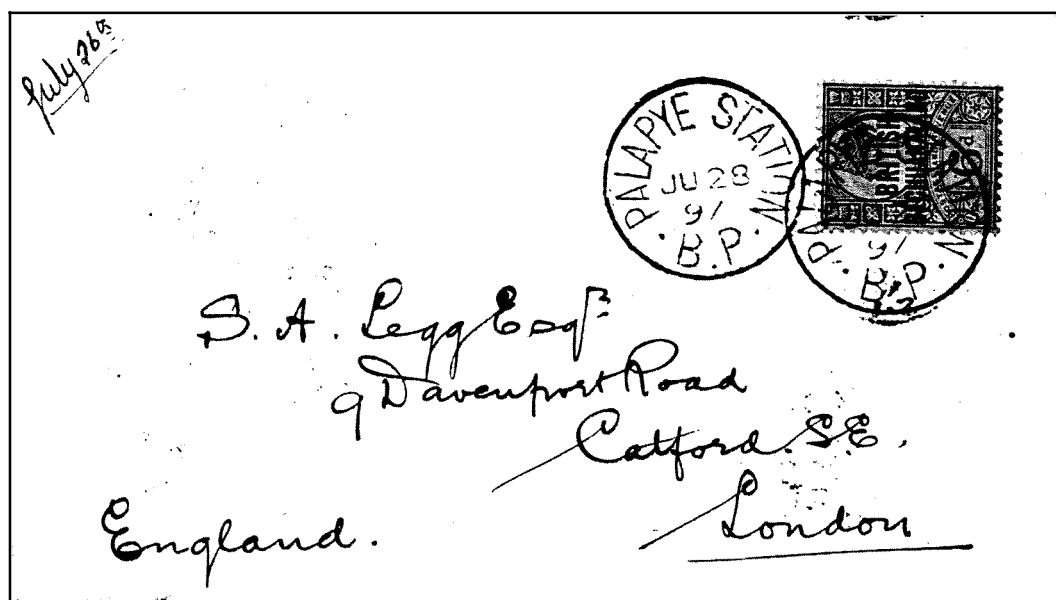 July 26th
PALAPYE STATION
JU 28
97
B.P.
BRITISH
97
B.P.
S. A. Legg Esqr
9 Davenport Road
Catford. S.E.
London
England.